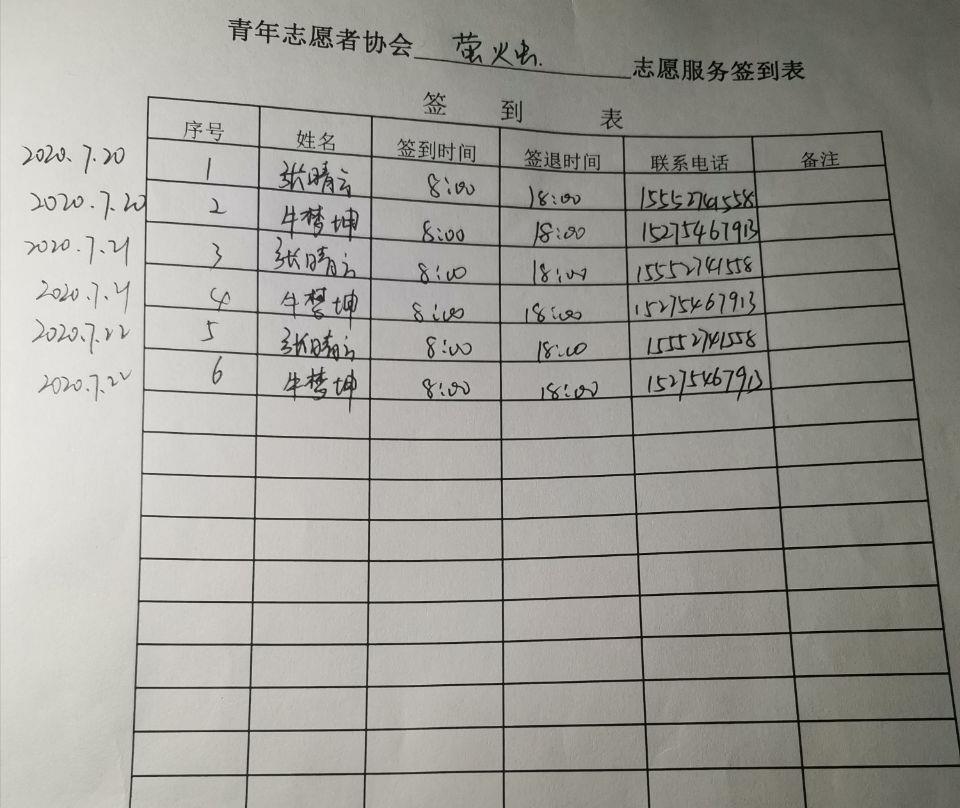 青年志愿者协会 萤火虫. 志愿服务签到表
签 到 表
序号 姓名 签到时间 签退时间 联系电话 备注
2020.7.20 1 张晴云 8:00 18:00 15552741558
2020.7.20 2 牛梦坤 8:00 18:00 15275467913
2020.7.21 3 张晴云 8:00 18:00 15552741558
2020.7.21 4 牛梦坤 8:00 18:00 15275467913
2020.7.22 5 张晴云 8:00 18:00 15552741558
2020.7.22 6 牛梦坤 8:00 18:00 15275467913